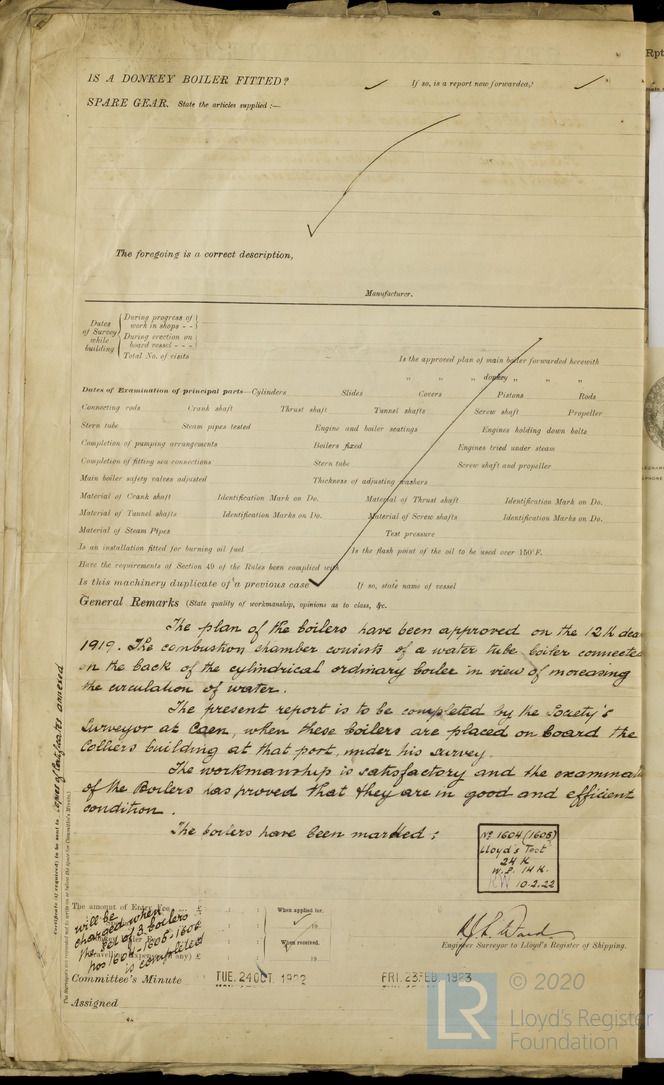 IS A DONKEY BOILER FITTED? ✓ If so, is a report now forwarded? ✓
SPARE GEAR. State the articles supplied :—
The foregoing is a correct description,
Manufacturer.
Dates of Survey while building
During progress of work in shops - -
During erection on board vessel - - -
Total No. of visits
Is the approved plan of main boiler forwarded herewith
„ „ „ donkey „ „ „
Dates of Examination of principal parts—Cylinders Slides Covers Pistons Rods
Connecting rods Crank shaft Thrust shaft Tunnel shafts Screw shaft Propeller
Stern tube Steam pipes tested Engine and boiler seatings Engines holding down bolts
Completion of pumping arrangements Boilers fixed Engines tried under steam
Completion of fitting sea connections Stern tube Screw shaft and propeller
Main boiler safety valves adjusted Thickness of adjusting washers
Material of Crank shaft Identification Mark on Do. Material of Thrust shaft Identification Mark on Do.
Material of Tunnel shafts Identification Marks on Do. Material of Screw shafts Identification Marks on Do.
Material of Steam Pipes Test pressure
Is an installation fitted for burning oil fuel Is the flash point of the oil to be used over 150°F.
Have the requirements of Section 49 of the Rules been complied with
Is this machinery duplicate of a previous case If so, state name of vessel
General Remarks (State quality of workmanship, opinions as to class, &c.
The plan of the boilers have been approved on the 12th
1919. The conbustion chamber consists of a water tube boiler connected
in the back of the cylindrical ordinary boiler in view of increasing
the circulation of water.
The present report is to be completed by the Society's
Surveyor at Caen, when these boilers are placed on board the
Colliers building at that port, under his survey.
The workmanship is satisfactory and the
of the Boilers has proved that they are in good and efficient
condition.
The boilers have been marked :
No. 1604 (1605)
Lloyd's Test
24 K
W.P. 14 K.
10.2.22
Certificate (if required) to be sent to
annexed
The amount of Entry Fee ... £
When applied for,
will be
charged when
the set of 3 boilers
nos 1604-1605-1606
is completed
When received,
19
Engineer Surveyor to Lloyd's Register of Shipping.
Committee's Minute TUE. 24 OCT. 1922 FRI. 23 FEB. 1923
Assigned
© 2020
LR Lloyd's Register
Foundation